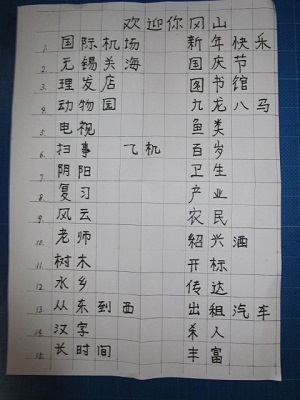 欢迎你冈山
1. 国际机场 新年快乐
2. 无锡关海 国庆节
3. 理发店 图书馆
4. 动物园 九龙八马
5. 电视 鱼类
6. 扫事 飞机 百岁
7. 阴阳 卫生
8. 复习 产业
9. 风云 农民
10. 老师 绍兴酒
11. 树木 开标
12. 水乡 传达
13. 从东到西 出租汽车
14. 汉字 杀人
15. 长时间 丰富